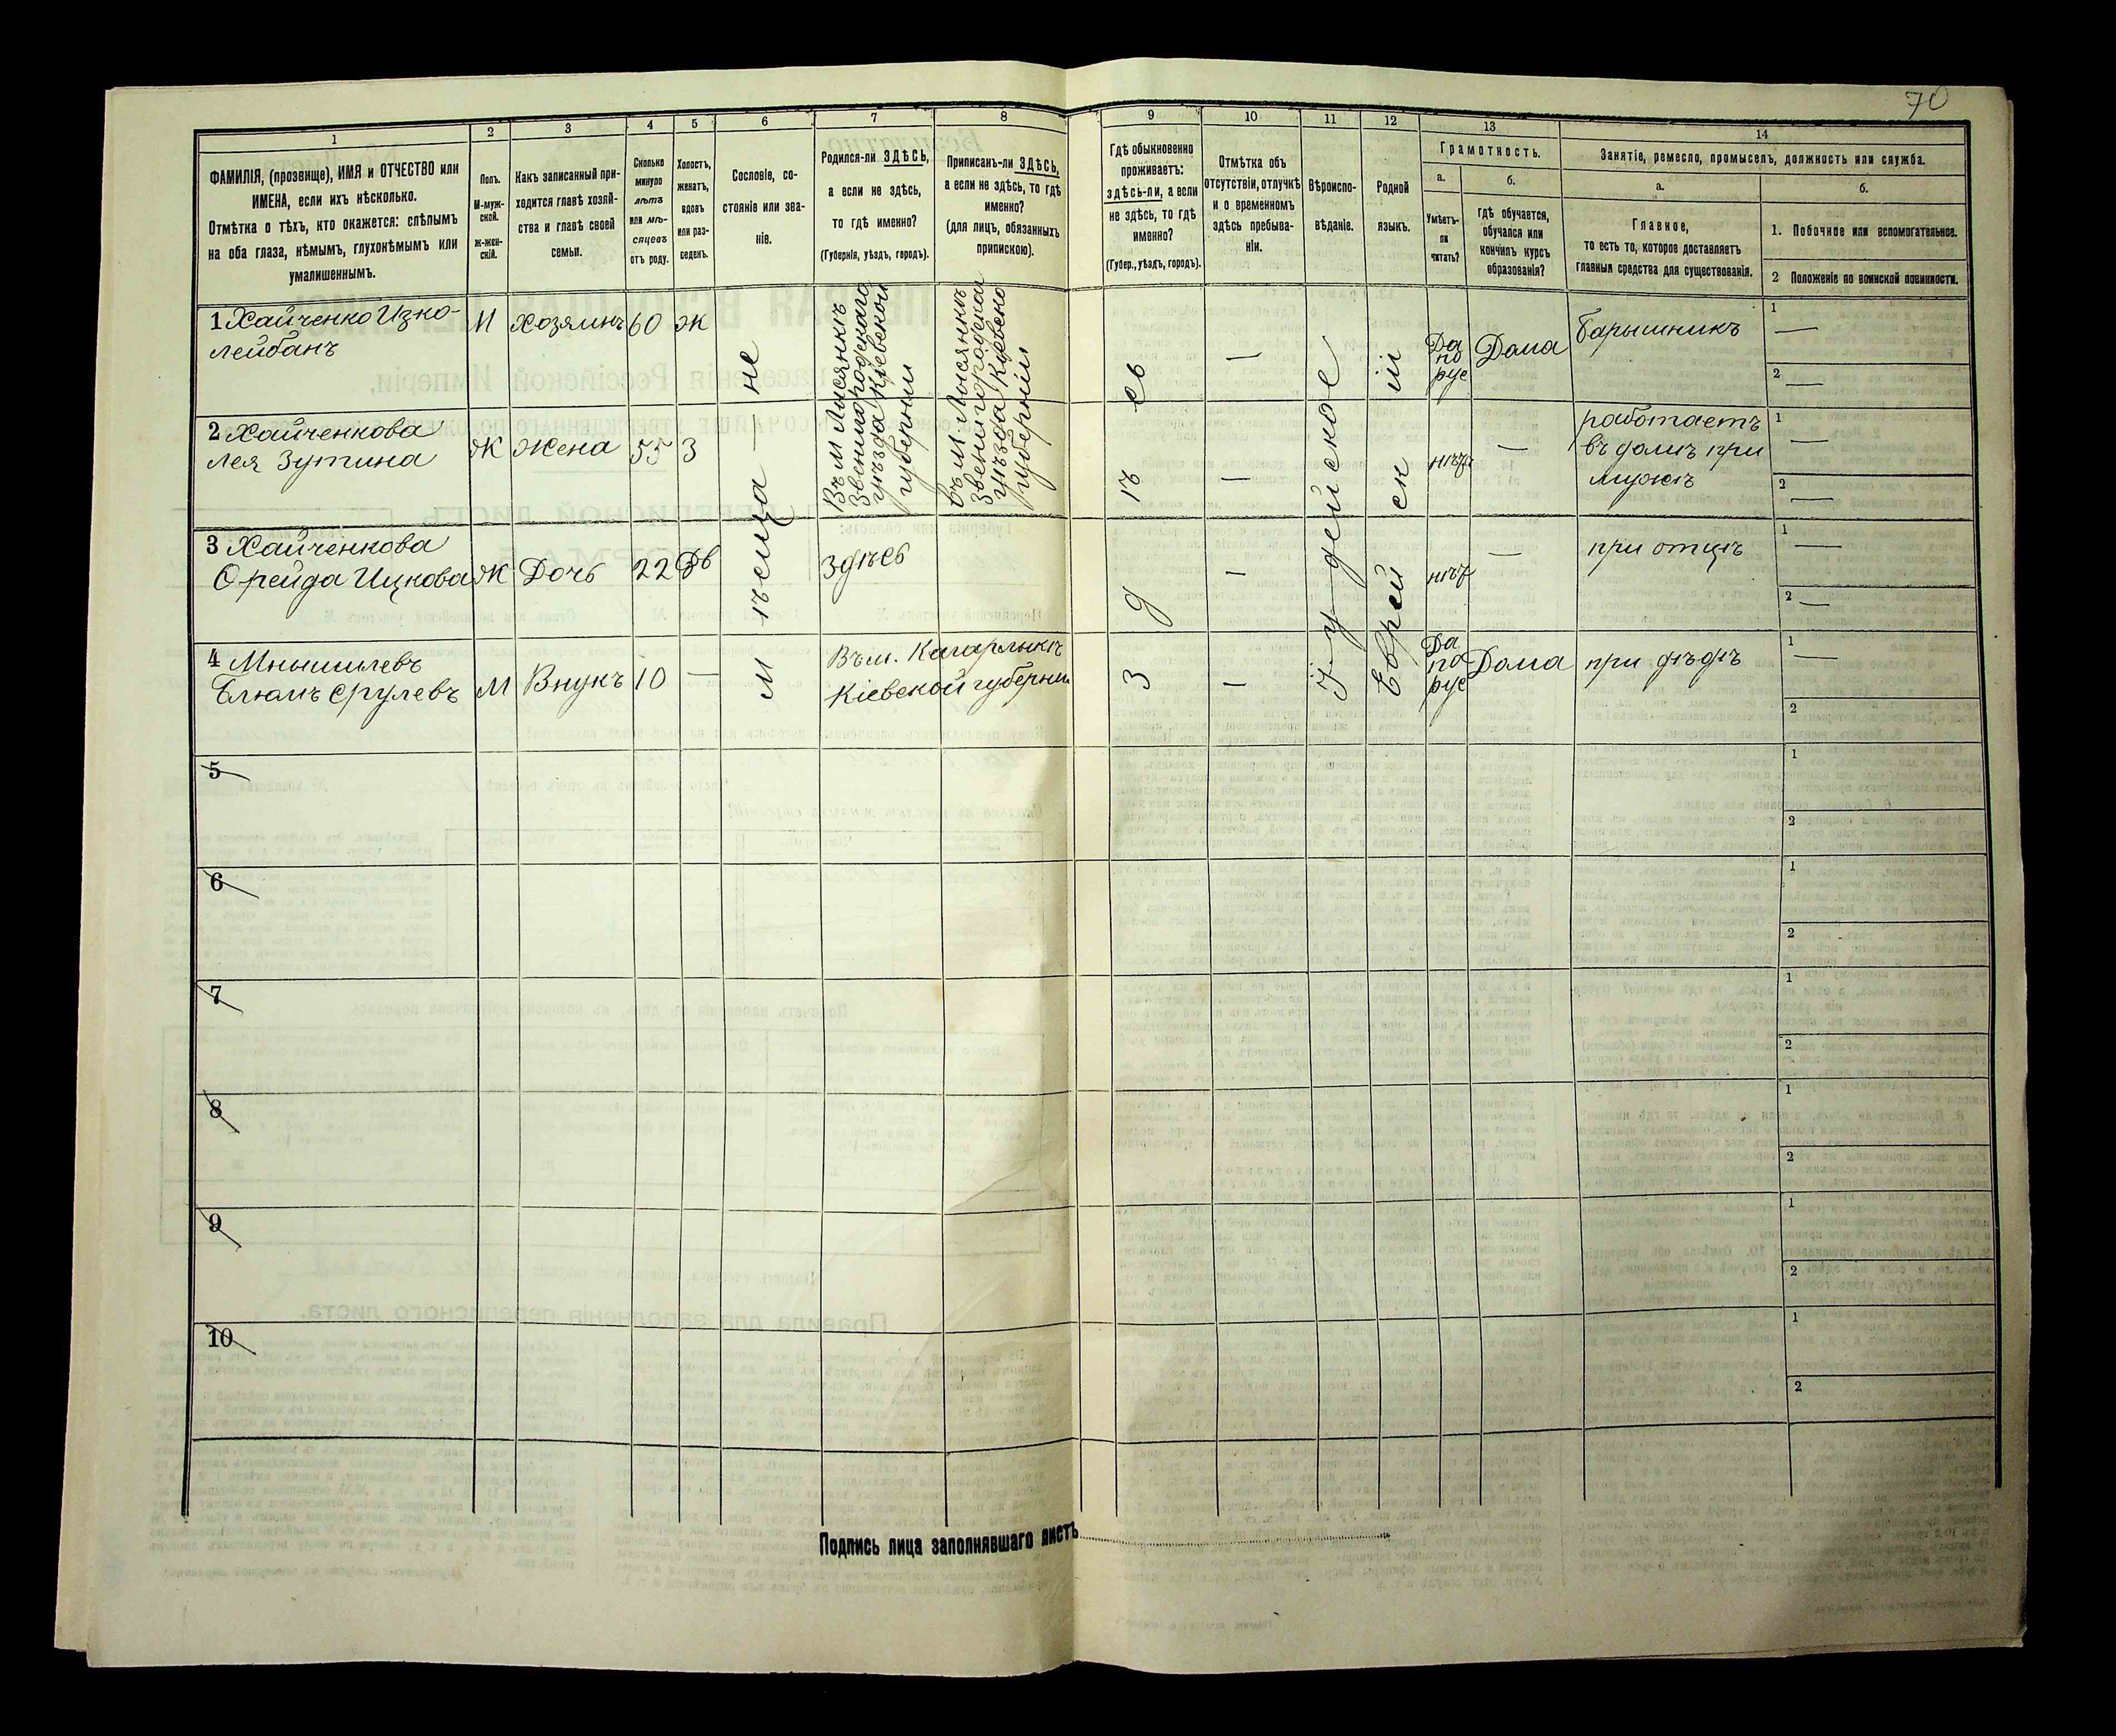 70
1 2 3 4 5 6 7 8 9 10 11 12 13 14
ФАМИЛІЯ, (прозвище), ИМЯ и ОТЧЕСТВО или
ИМЕНА, если ихъ нѣсколько.
Отмѣтка о тѣхъ, кто окажется: слѣпымъ
на оба глаза, нѣмымъ, глухонѣмымъ или
умалишеннымъ.
Полъ.
М-муж-
ской.
Ж-жен-
скій.
Какъ записанный при-
ходится главѣ хозяй-
ства и главѣ своей
семьи.
Сколько
минуло
лѣтъ
или мѣ-
сяцевъ
отъ роду.
Холостъ,
женатъ,
вдовъ
или раз-
веденъ.
Сословіе, со-
стояніе или зва-
ніе.
Родился-ли ЗДѢСЬ,
а если не здѣсь,
то гдѣ именно?
(Губернія, уѣздъ, городъ).
Приписанъ-ли ЗДѢСЬ,
а если не здѣсь, то гдѣ
именно?
(для лицъ, обязанныхъ
припискою).
Гдѣ обыкновенно
проживаетъ:
здѣсь-ли, а если
не здѣсь, то гдѣ
именно?
(Губер., уѣздъ, городъ).
Отмѣтка объ
отсутствіи, отлучкѣ
и о временномъ
здѣсь пребыва-
ніи.
Вѣроиспо-
вѣданіе.
Родной
языкъ.
Грамотность.
а.
Умѣетъ-
ли
читать?
б.
гдѣ обучается,
обучался или
кончилъ курсъ
образованія?
Занятіе, ремесло, промыселъ, должность или служба.
а.
Главное,
то есть то, которое доставляетъ
главныя средства для существованія.
б.
1. Побочное или вспомогательное.
2 Положеніе по воинской повинности.
1 Хайченко Ицко-
лейбанъ
М Хозяинъ 60 Ж
мѣщане
Въ м Лисянкѣ
Звенигородскаго
уѣзда Кіевской
губерніи
Въ м Лисянкѣ
Звенигородскаго
уѣзда Кіевской
губерніи
Здѣсь
—
Іудейское
Еврейскій
Да
по
рус
Дома
барышникъ
1 —
2 —
2 Хайченкова
Лея Зутина
Ж Жена 55 З
—
нѣтъ
—
работаетъ
въ домѣ при
мужѣ
1 —
2 —
3 Хайченкова
Фрейда Ицкова
Ж Дочь 22 Дв
Здѣсь
—
нѣтъ
—
при отцѣ
1 —
2 —
4 Мнышилевъ
Блюмъ Срулевъ
М Внукъ 10 —
Въ м. Кагарлыкѣ
Кіевской губерніи
—
Да
по
рус
Дома
при дѣдѣ
1 —
2
5
1
2
6
1
2
7
1
2
8
1
2
9
1
2
10
1
2
Подпись лица заполнявшаго листъ